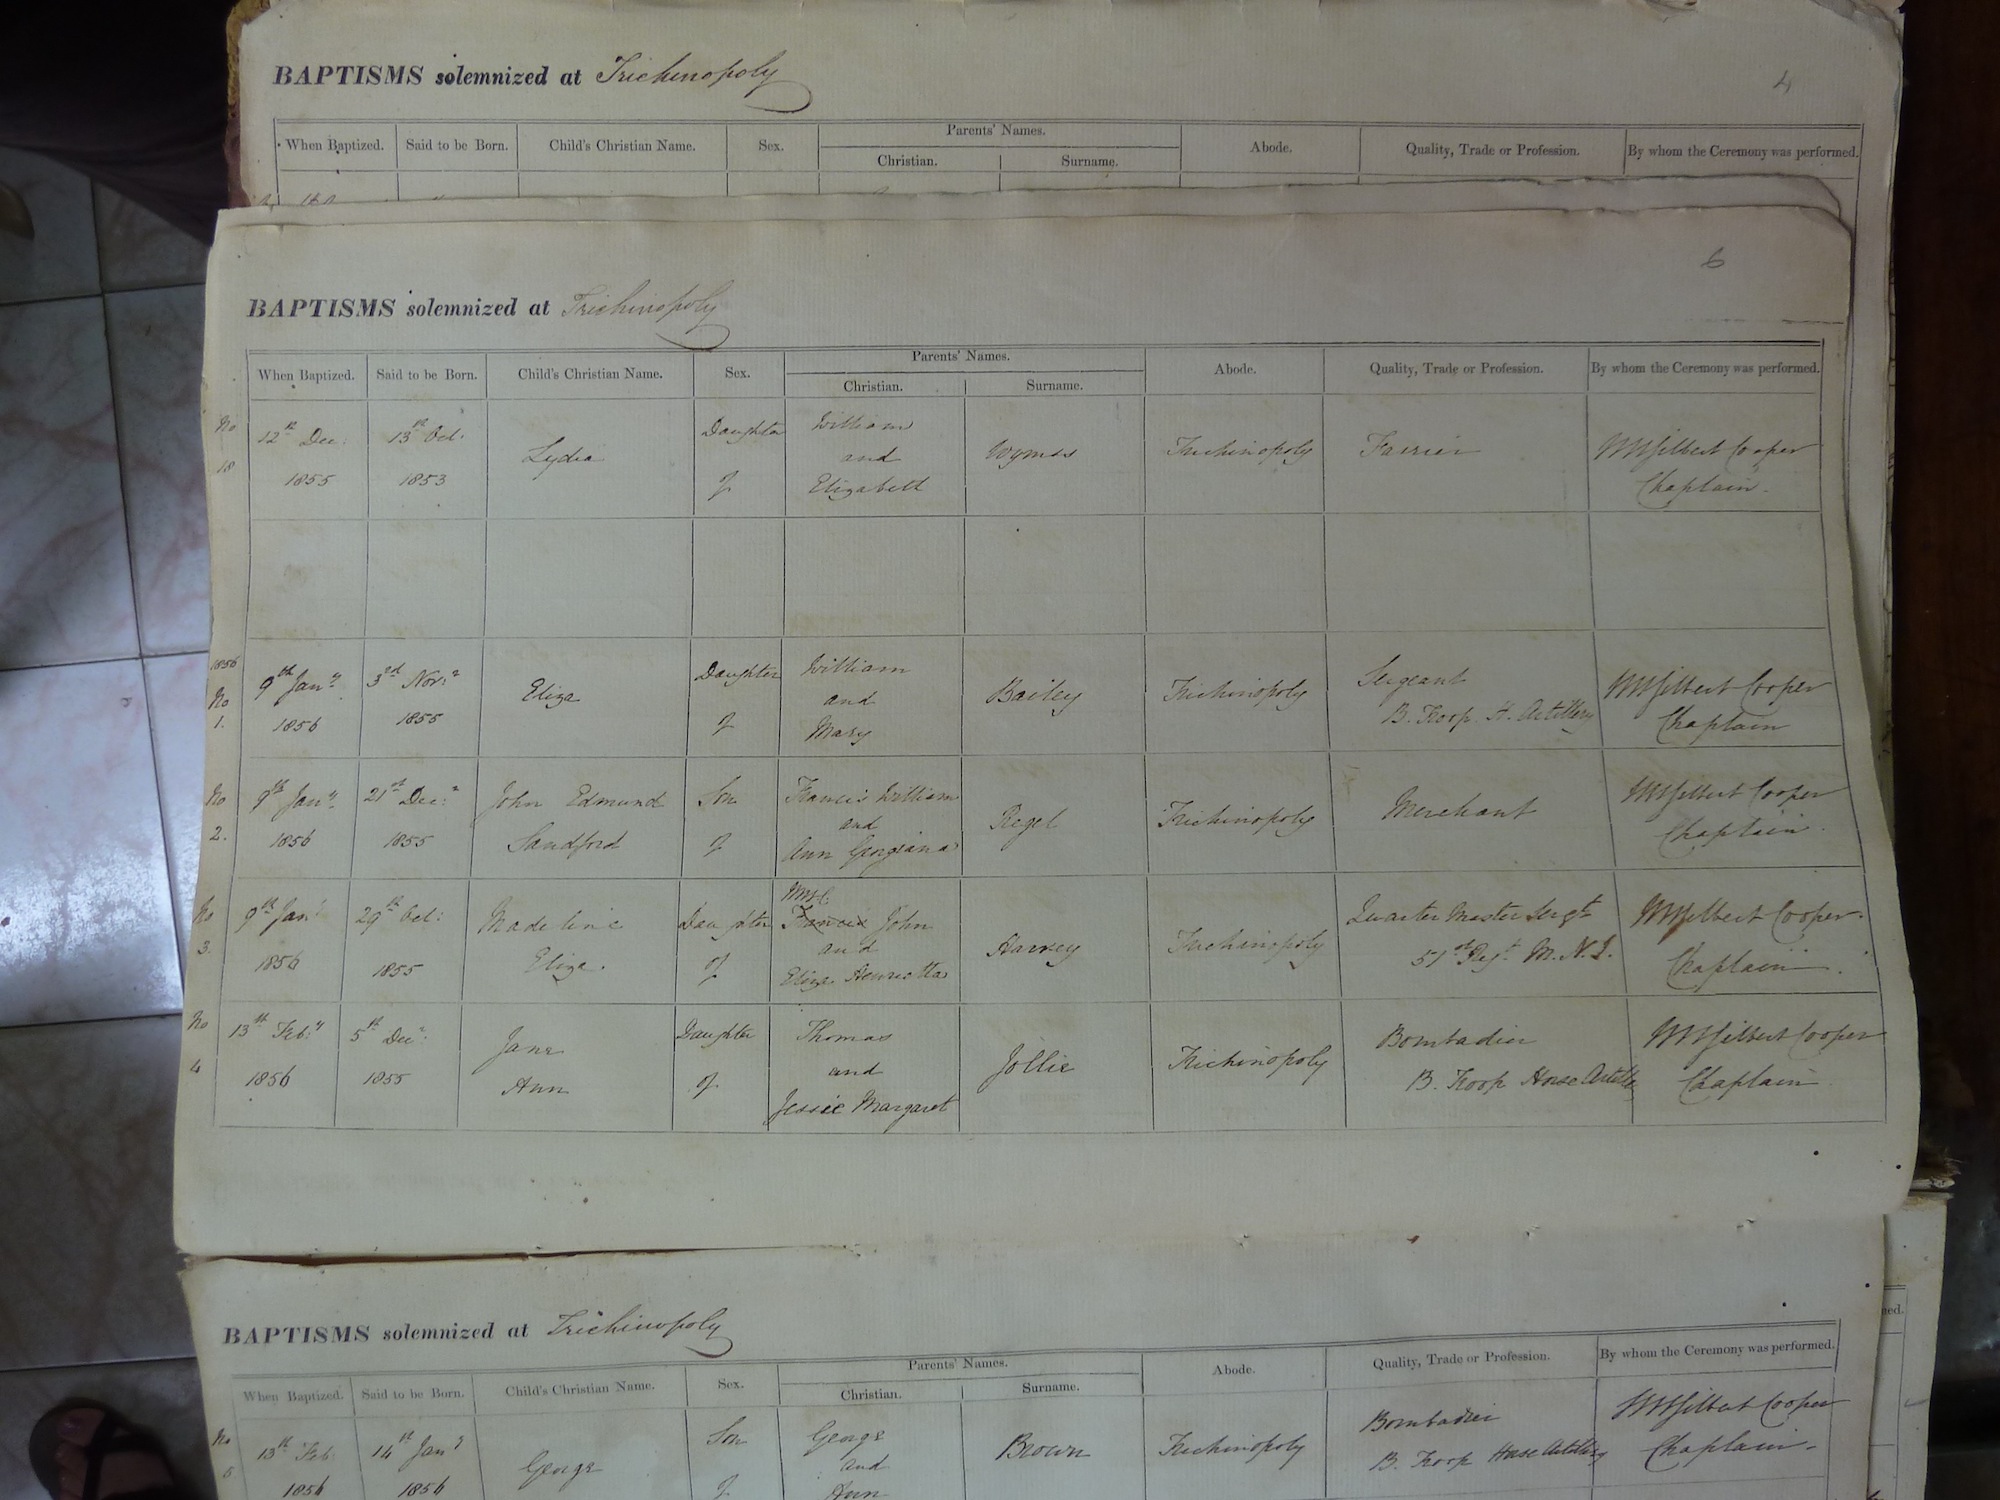 BAPTISMS solemnized at Trichinopoly
4
When Baptized. Said to be Born. Child's Christian Name. Sex. Parents' Names. Christian. Surname. Abode. Quality, Trade or Profession. By whom the Ceremony was performed.
6
BAPTISMS solemnized at Trichinopoly
When Baptized. Said to be Born. Child's Christian Name. Sex. Parents' Names. Christian. Surname. Abode. Quality, Trade or Profession. By whom the Ceremony was performed.
No 12th Dec: 13th Oct. Daughter William
Lydia and Wymss Trichinopoly Farrier Wm Gilbert Cooper
18 1855 1853 of Elizabeth Chaplain.
1856
9th Jany 3rd Novr Daughter William Sergeant
No Eliza and Bailey Trichinopoly Wm Gilbert Cooper
1. 1856 1855 of Mary B. Troop H. Artillery Chaplain
No 9th Jany 21st Decr John Edmund Son Francis William Wm Gilbert Cooper
and Regel Trichinopoly Merchant
2. 1856 1855 Sandford of Ann Georgiana Chaplain.
No 9th Jany 29th Oct: Madeline Daughter Francis John Quarter Master Sergt Wm Gilbert Cooper.
and Harvey Trichinopoly
3. 1856 1855 Eliza. of Eliza Henrietta 51st Regt. M.N.I. Chaplain.
No 13th Feby 5th Decr Jane Daughter Thomas Bombadier Wm Gilbert Cooper
and Jollie Trichinopoly
4 1856 1855 Ann of Jessie Margaret B. Troop Horse Artille Chaplain
BAPTISMS solemnized at Trichinopoly
When Baptized. Said to be Born. Child's Christian Name. Sex. Parents' Names. Christian. Surname. Abode. Quality, Trade or Profession. By whom the Ceremony was performed.
med.
No 13th Feb 14th Jany Son George Bombadier Wm Gilbert Cooper
George and Brown Trichinopoly
5 1856 1856 of Ann B. Troop Horse Artillery Chaplain.